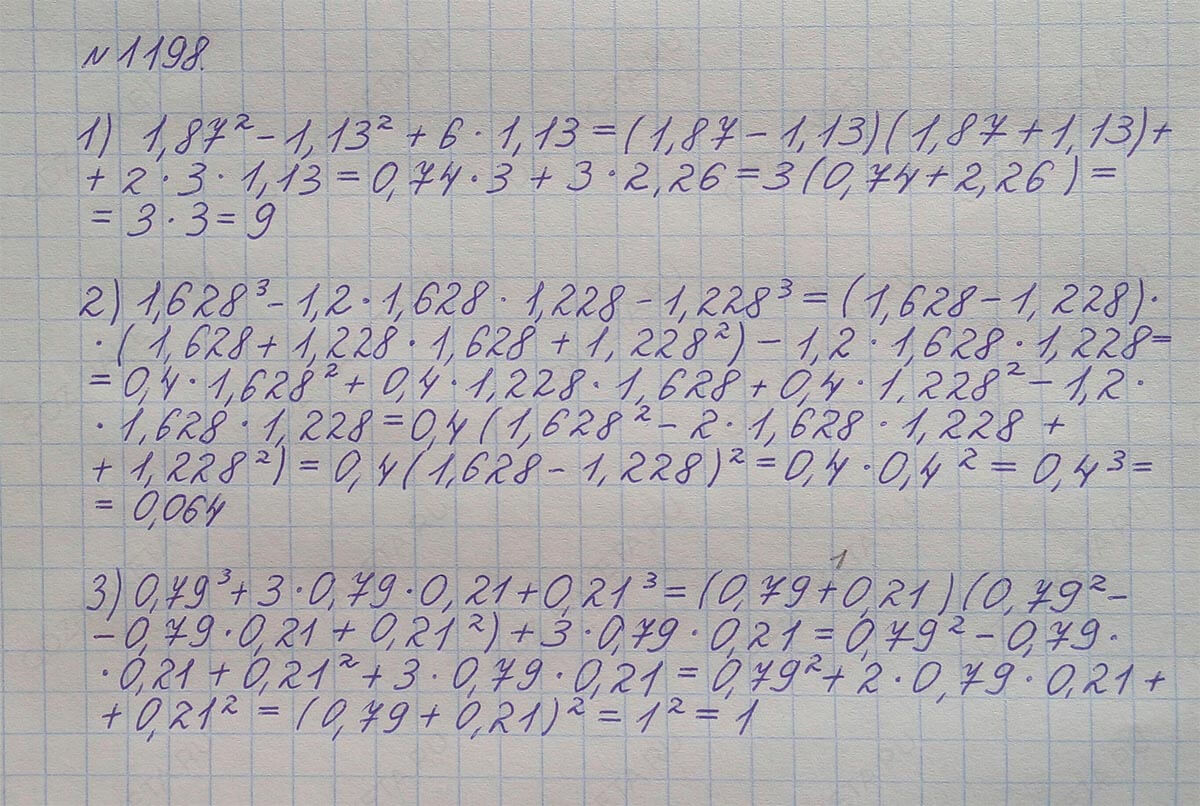 №1198.
1) 1,87² - 1,13² + 6 · 1,13 = (1,87 - 1,13)(1,87 + 1,13) +
+ 2 · 3 · 1,13 = 0,74 · 3 + 3 · 2,26 = 3(0,74 + 2,26) =
= 3 · 3 = 9
2) 1,628³ - 1,2 · 1,628 · 1,228 - 1,228³ = (1,628 - 1,228) ·
· (1,628 + 1,228 · 1,628 + 1,228²) - 1,2 · 1,628 · 1,228 =
= 0,4 · 1,628² + 0,4 · 1,228 · 1,628 + 0,4 · 1,228² - 1,2 ·
· 1,628 · 1,228 = 0,4(1,628² - 2 · 1,628 · 1,228 +
+ 1,228²) = 0,4(1,628 - 1,228)² = 0,4 · 0,4² = 0,4³ =
= 0,064
1
3) 0,79³ + 3 · 0,79 · 0,21 + 0,21³ = (0,79 + 0,21)(0,79² -
- 0,79 · 0,21 + 0,21²) + 3 · 0,79 · 0,21 = 0,79² - 0,79 ·
· 0,21 + 0,21² + 3 · 0,79 · 0,21 = 0,79² + 2 · 0,79 · 0,21 +
+ 0,21² = (0,79 + 0,21)² = 1² = 1